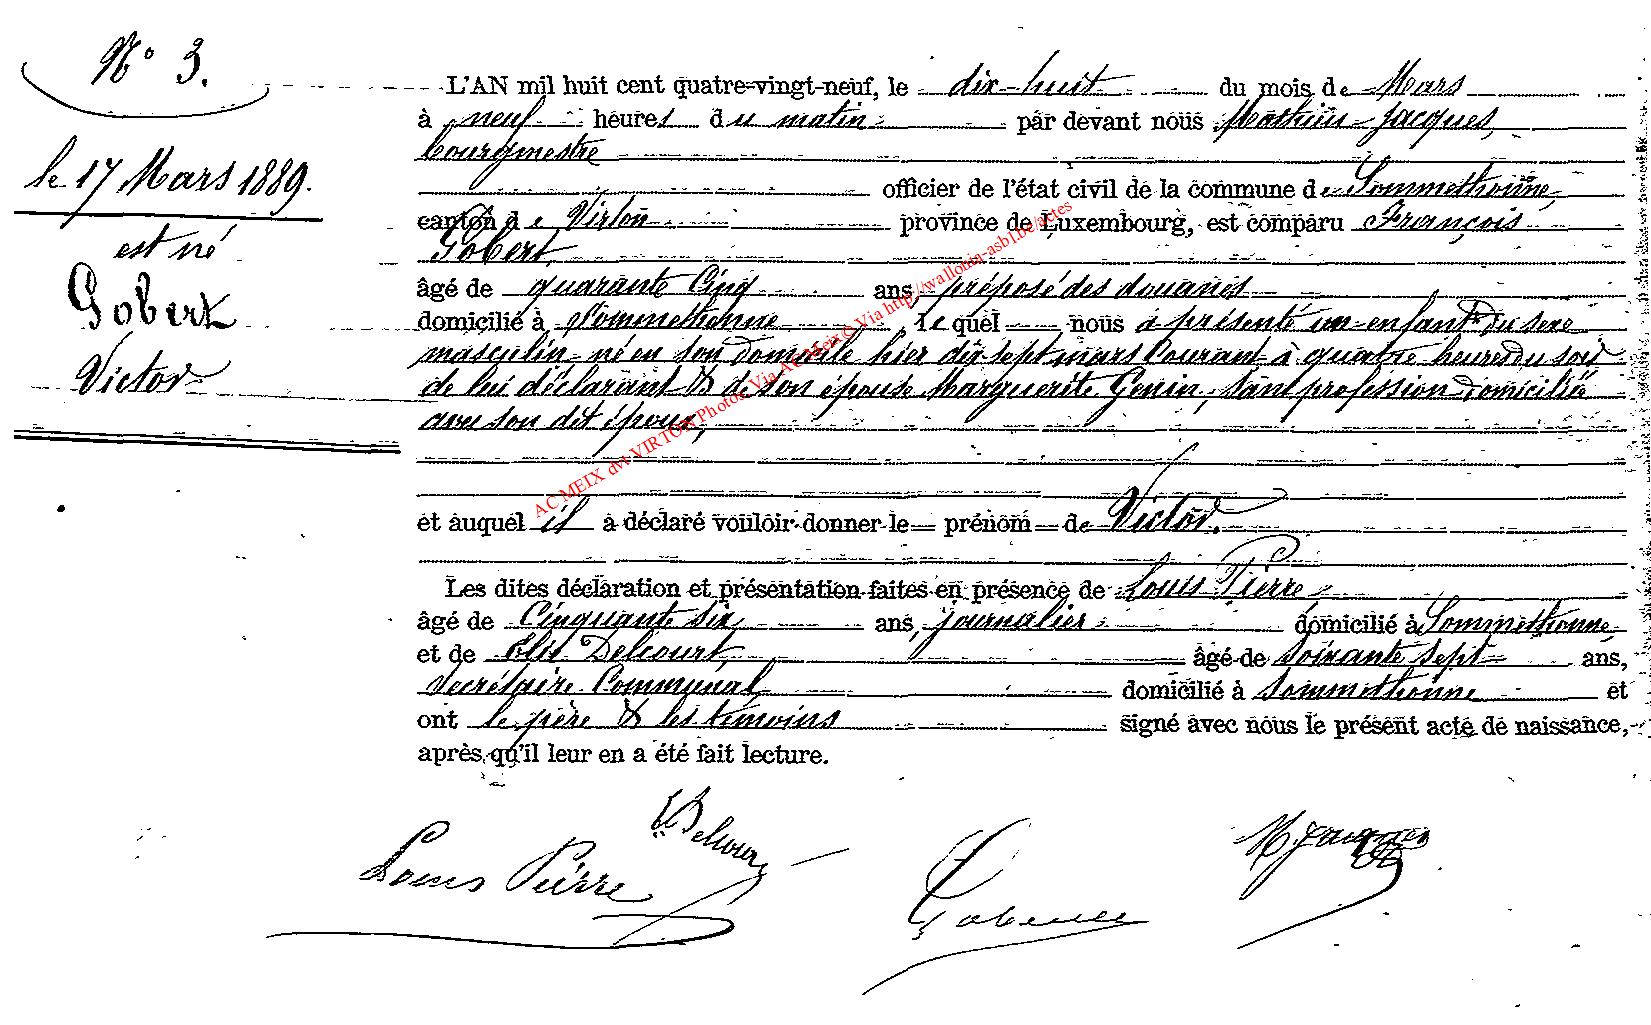 N° 3.
le 17 Mars 1889.
est né
Gobert
Victor
L'AN mil huit cent quatre-vingt-neuf, le dix-huit du mois de Mars
à neuf heures du matin par devant nous Mathieu Jacques,
bourgmestre
officier de l'état civil de la commune de Sommethonne,
canton de Virton province de Luxembourg, est comparu François
Gobert
âgé de quarante Cinq ans préposé des douanes
domicilié à Sommethonne, lequel nous a présenté un enfant du sexe
masculin né en son domicile hier dix sept mars Courant à quatre heures du soir
de lui déclarant & de son épouse Marguerite Genin, sans profession domiciliée
avec son dit époux,
et auquel il a déclaré vouloir donner le prénom de Victor.
Les dites déclaration et présentation faites en présence de Louis Pierre
âgé de Cinquante six ans, journalier domicilié à Sommethonne,
et de Delcourt, âgé de soixante sept ans,
Secrétaire Communal domicilié à Sommethonne et
ont le père & les témoins signé avec nous le présent acte de naissance,
après qu'il leur en a été fait lecture.
AC MEIX dvt VIRTON Photos Via AC Meix © Via http://wallonia-asbl.be/actes
Delcourt
Louis Pierre
Gobert
M Jacques